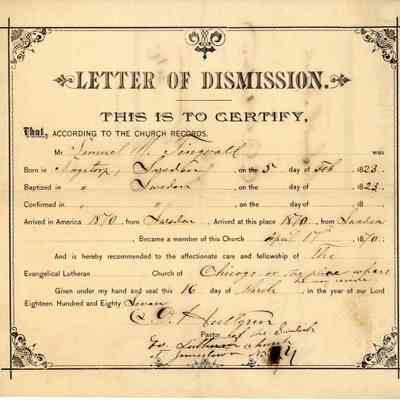 LETTER OF DISMISSION.
THIS IS TO CERTIFY,
That, ACCORDING TO THE CHURCH RECORDS,
Mr Samuel M. was
Born in Sweden, on the 5 day of Feb 1823.
Baptized in " Sweden, on the " day of " 1823.
Confirmed in " " , on the day of 18
Arrived in America 1870, from Sweden Arrived at this place 1870, from Sweden
Became a member of this Church April 17th 1870.
And is hereby recommended to the affectionate care and fellowship of The
Evangelical Lutheran Church of Chicago or the place where
he may reside
Given under my hand and seal this 16 day of March, in the year of our Lord
Eighteen Hundred and Eighty Seven
Pastor of the Swedish
Ev. Lutheran Church
at Jamestown N.Y.